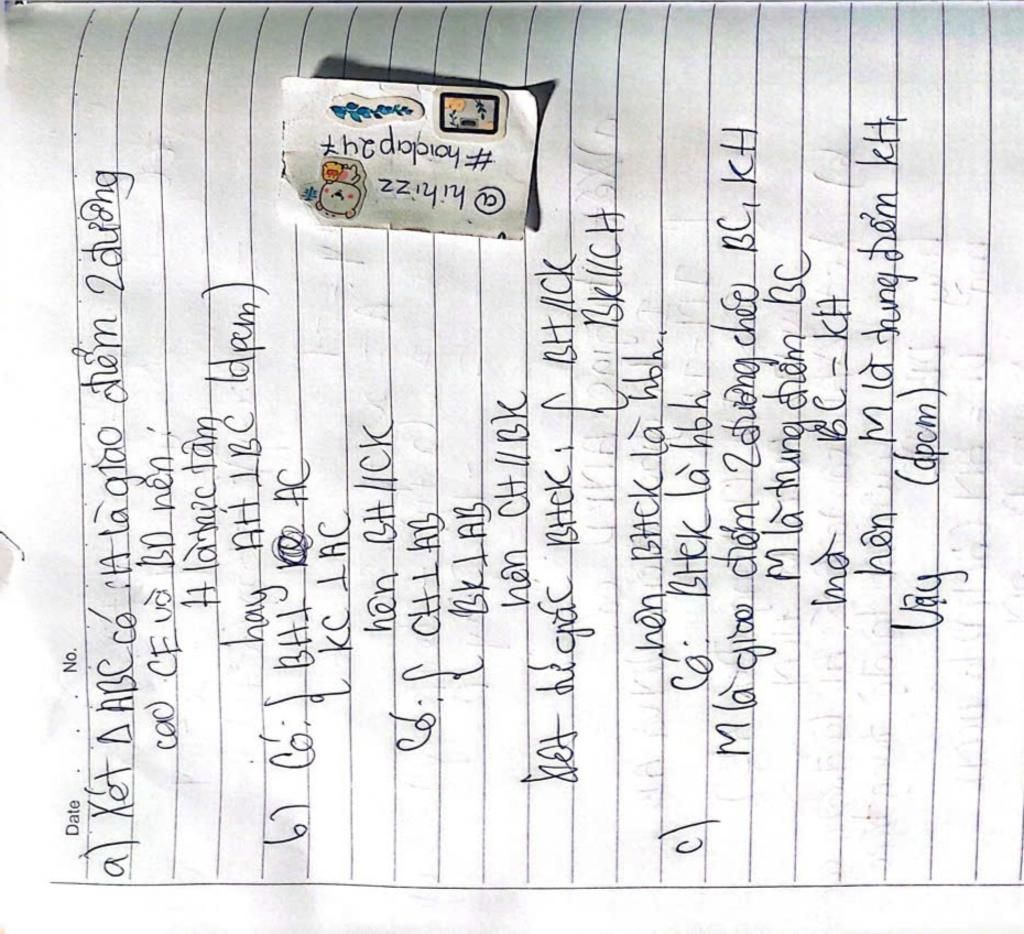 Date No.
a) Xét Δ ABC có AH là giao điểm 2 đường
cao CE và BD nên,
H là trực tâm
hay AH ⊥ BC (đpcm)
b) Có: { BH ⊥ AC
KC ⊥ AC
nên BH // CK
Có: { CH ⊥ AB
BK ⊥ AB
nên CH // BK
Xét tứ giác BHCK, { BH // CK
BK // CH
nên BHCK là hbh.
c) Có: BHCK là hbh
M là giao điểm 2 đường chéo BC, KH
M là trung điểm BC
mà BC = KH
nên M là trung điểm KH,
Vậy (đpcm)
@hihizz
#hoidap247